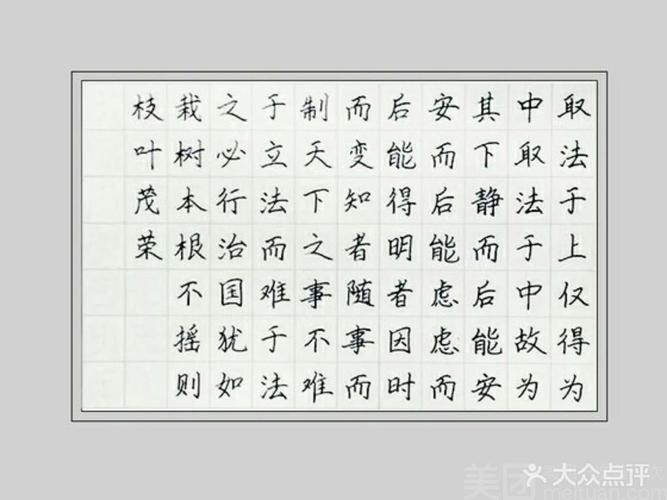 取法于上仅得为
中取法于中故为
其下静而后能安
安而后能虑虑而
后能得明者因时
而变知者随事而
制天下之事不难
于立法而难于法
之必行治国犹如
栽树本根不摇则
枝叶茂荣
美团
meituan.com
大众点评